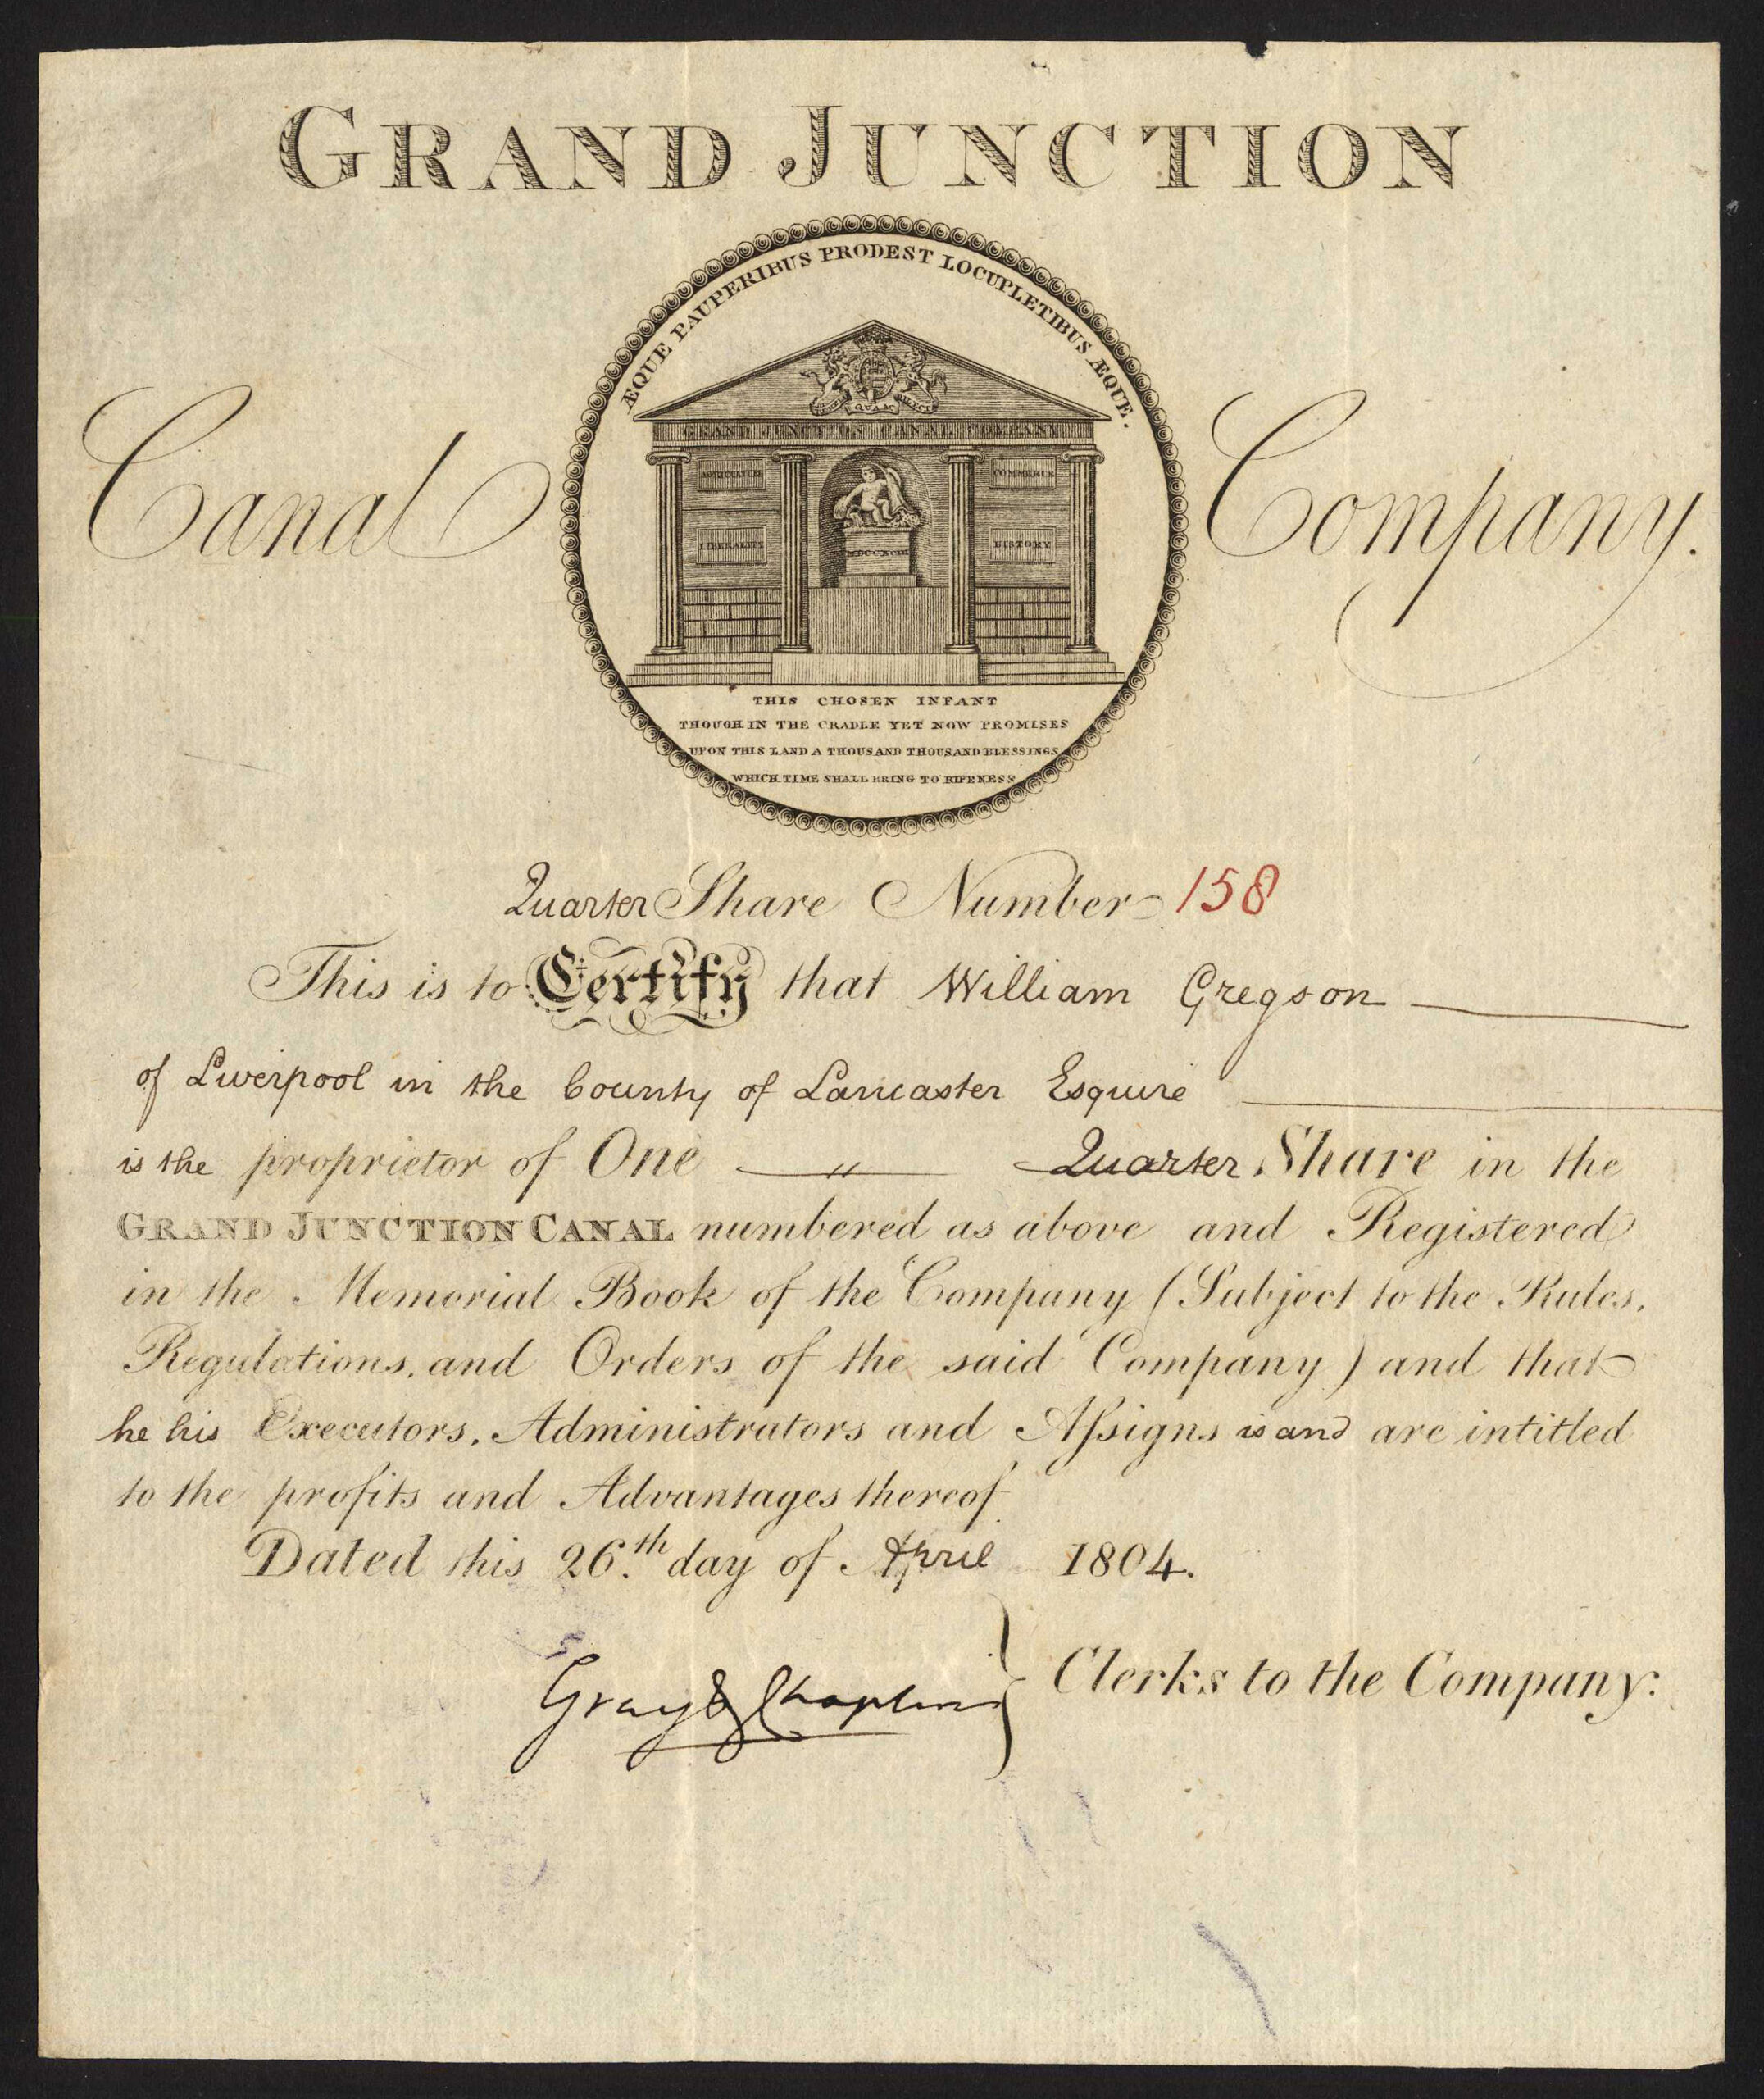 GRAND JUNCTION
Canal Company.
ÆQUE PAUPERIBUS PRODEST LOCUPLETIBUS ÆQUE.
GRAND JUNCTION CANAL COMPANY
COMMERCE
LIBERALITY HISTORY
MDCCXCIII
THIS CHOSEN INFANT
THOUGH IN THE CRADLE YET NOW PROMISES
UPON THIS LAND A THOUSAND THOUSAND BLESSINGS
WHICH TIME SHALL BRING TO RIPENESS
Quarter Share Number 158
This is to Certify that William Gregson
of Liverpool in the County of Lancaster Esquire
is the proprietor of One " Quarter Share in the
GRAND JUNCTION CANAL numbered as above and Registered
in the Memorial Book of the Company (Subject to the Rules,
Regulations, and Orders of the said Company) and that
he his Executors, Administrators and Aſsigns is and are intitled
to the profits and Advantages thereof
Dated this 26.th day of April 1804.
Gray & Chaplin } Clerks to the Company.